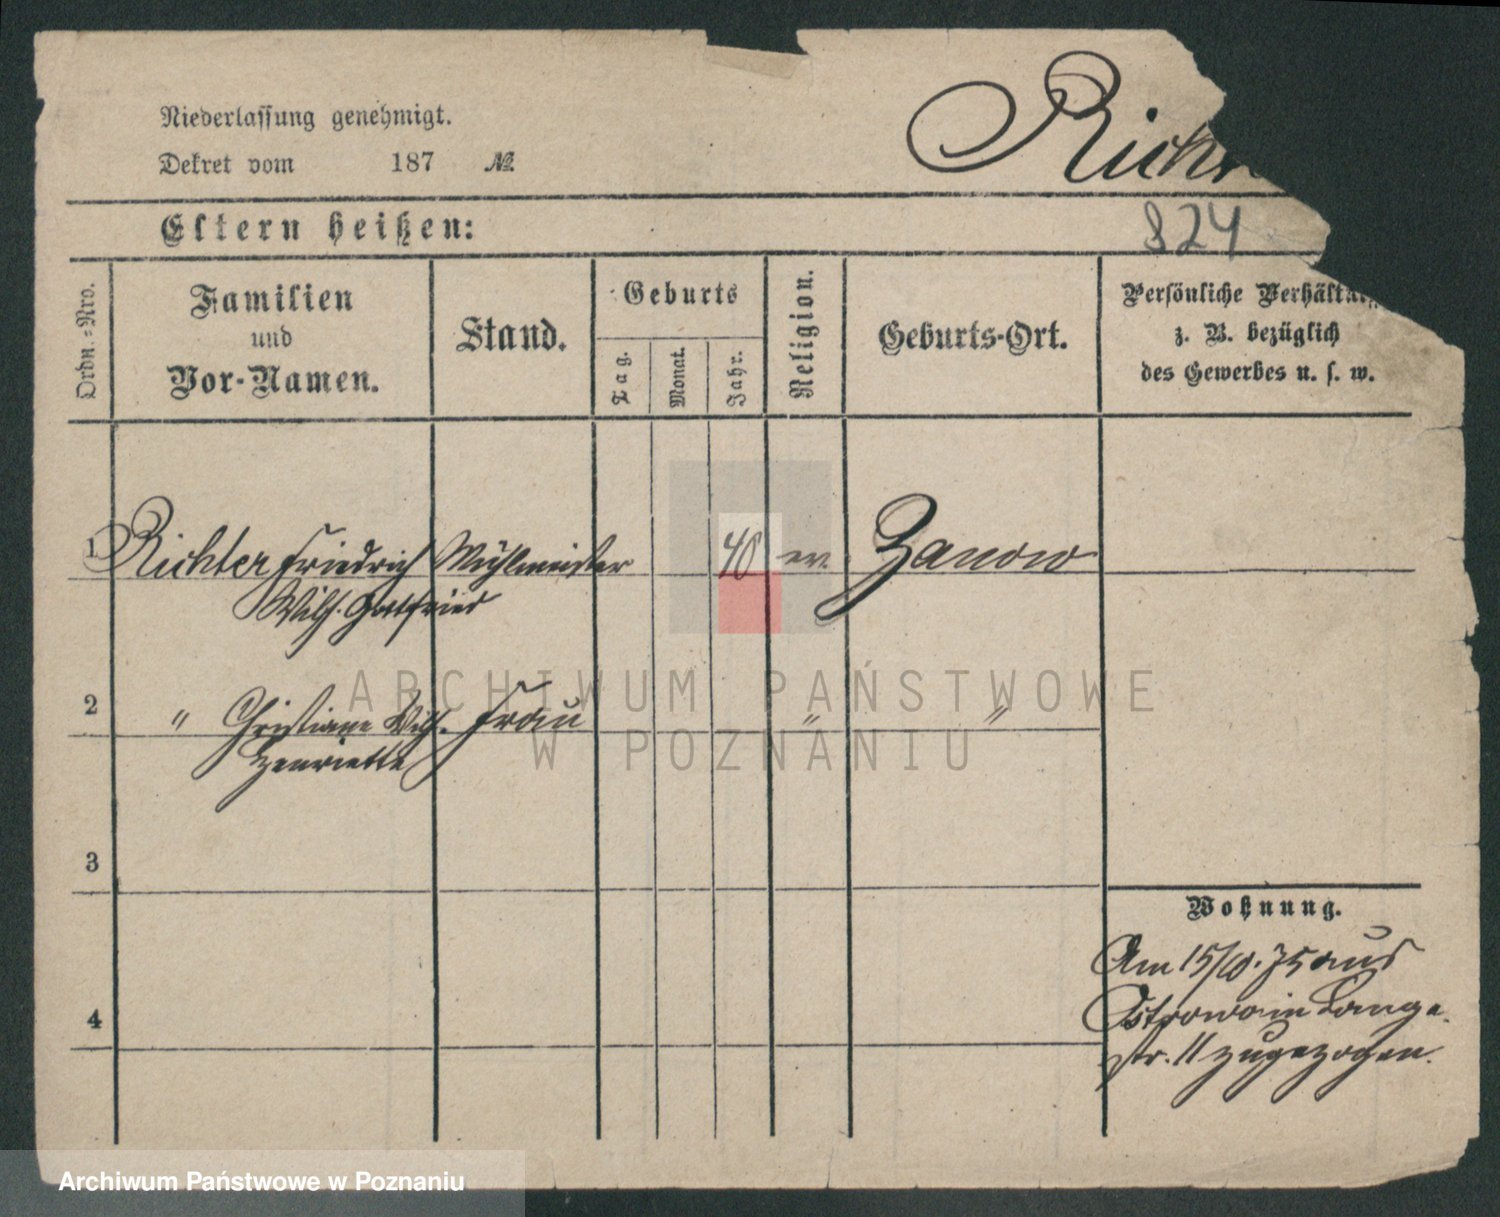 Niederlassung genehmigt.
Dekret vom 187 №
Richt
824
Eltern heißen:
Ordn.-Nro.
Familien
und
Vor-Namen.
Stand.
Geburts
Tag.
Monat.
Jahr.
Religion.
Geburts-Ort.
Persönliche Verhältni
z. B. bezüglich
des Gewerbes u. s. w.
1 Richter Friedrich Mühlmeister 48 ev. Zanow
Wilh. Gottfried
2 " Christiane Wilh. Frau " "
Henriette
3
4
Wohnung.
Am 15/10. 75 aus
Ostrowo in Lange
str. 11 zugezogen.
ARCHIWUM PAŃSTWOWE
W POZNANIU
Archiwum Państwowe w Poznaniu